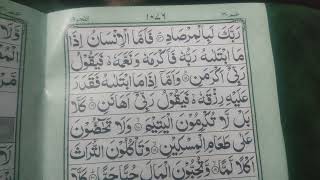 ١٠٧٦
رَبَّكَ لَبِالْمِرْصَادِ ۝ فَاَمَّا الْاِنْسَانُ اِذَا
مَا ابْتَلٰىهُ رَبُّهٗ فَاَكْرَمَهٗ وَنَعَّمَهٗ ۙ فَيَقُوْلُ
رَبِّىْٓ اَكْرَمَنِ ۝ وَاَمَّآ اِذَا مَا ابْتَلٰىهُ فَقَدَرَ
عَلَيْهِ رِزْقَهٗ ۙ فَيَقُوْلُ رَبِّىْٓ اَهَانَنِ ۝ كَلَّا
بَلْ لَّا تُكْرِمُوْنَ الْيَتِيْمَ ۝ وَلَا تَحٰٓضُّوْنَ
عَلٰى طَعَامِ الْمِسْكِيْنِ ۝ وَتَاْكُلُوْنَ التُّرَاثَ
اَكْلًا لَّمًّا ۝ وَّتُحِبُّوْنَ الْمَالَ حُبًّا جَمًّا ۝ كَلَّآ